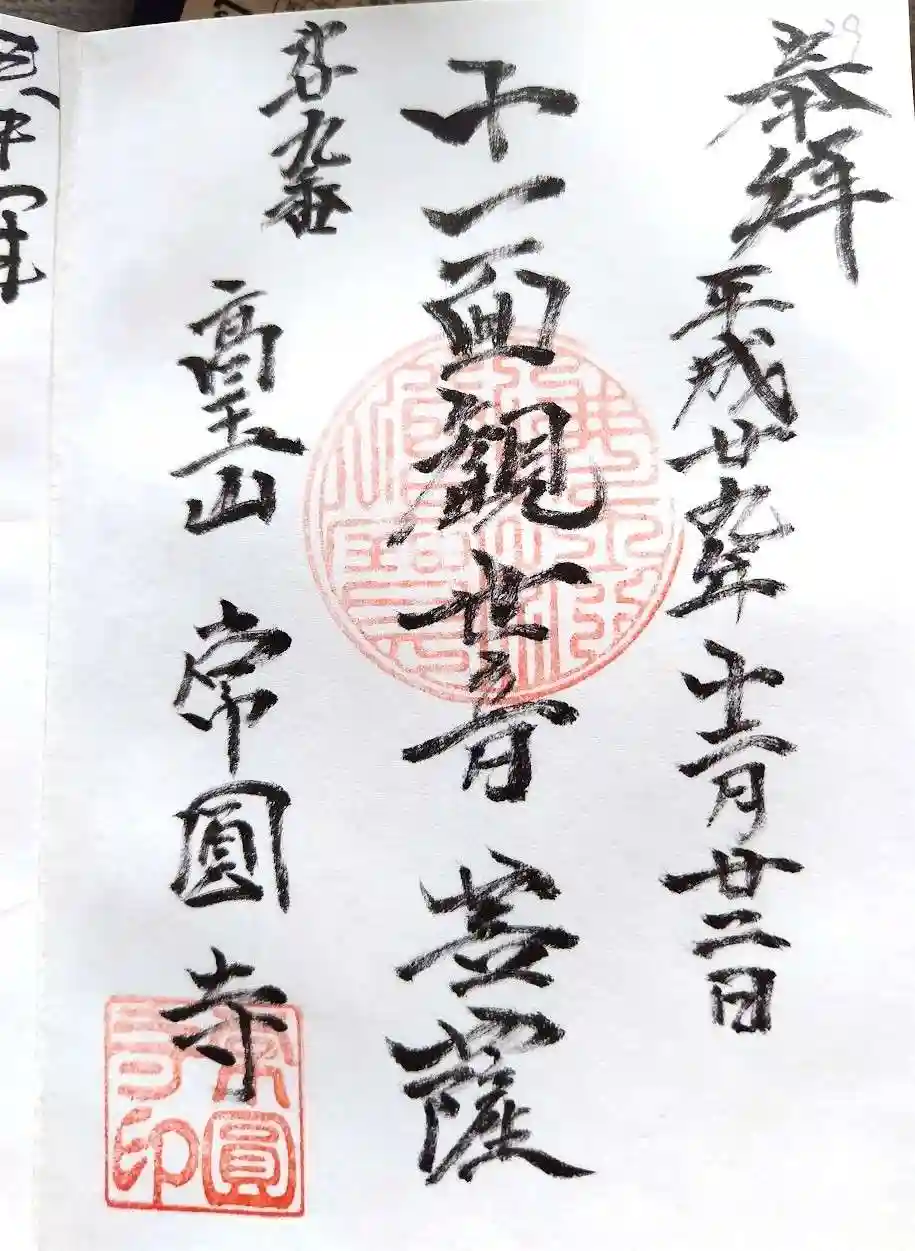 奉拝
平成廿九年十一月廿二日
十一面観世音菩薩
第九番
高王山 常圓寺
常圓寺印